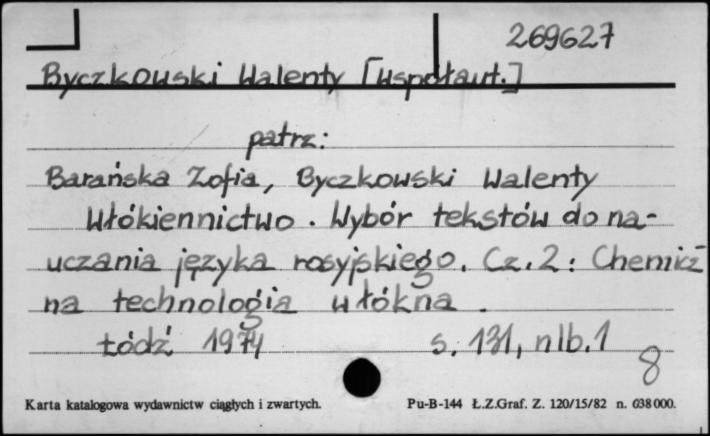 269627
Byczkowski Walenty [współaut.]
patrz:
Barańska Zofia, Byczkowski Walenty
Włókiennictwo. Wybór tekstów do na-
uczania języka rosyjskiego. Cz. 2: Chemicz-
na technologia włókna.
Łódź 1974 s. 131, nlb. 1
8
Karta katalogowa wydawnictw ciągłych i zwartych. Pu-B-144 Ł.Z.Graf. Z. 120/15/82 n. 038000.